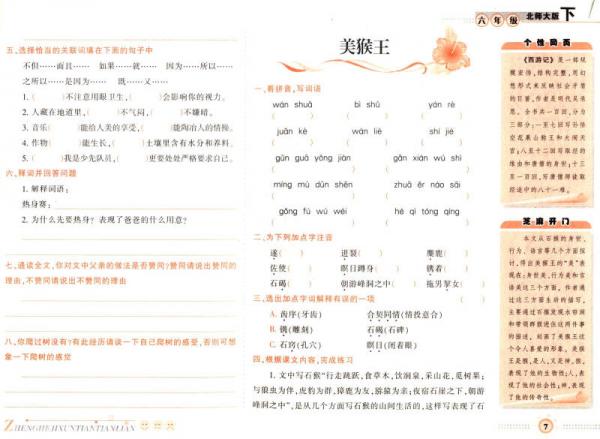 六年级 北师大版 下
五、选择恰当的关联词填在下面的句子中
不但……而且…… 如果……就…… 因为……所以……
之所以……是因为…… 既……又……
1.( )不注意用眼卫生,( )会影响你的视力。
2. 人藏在地道里,( )不气闷,( )不嫌暗。
3. 音乐( )能给人美的享受,( )能陶冶人的情操。
4. 作物( )能生长,( )土壤里含有水分和养料。
5.( )我是少先队员,( )更要处处严格要求自己。
六、释词并回答问题
1. 解释词语:
热身赛:
2. 为什么先要热身? 表现了爸爸的什么用意?
七、通读全文,你对文中父亲的做法是否赞同?赞同请说出赞同的
理由,不赞同请说出不赞同的理由
八、你爬过树没有?有此经历请谈一下自己爬树的感受,否则可想
象一下爬树的感觉
美猴王
一、看拼音,写词语
wán shuǎ bì shū yán rè
( ) ( ) ( )
juān kè wán liè shí jié
( ) ( ) ( )
gūn guā yǒng jiàn gǎn xiē xiǎng xiàng
( ) ( )
míng mù dūn shēn zhuā ěr náo sāi
( ) ( )
gǒng fú wú wéi hé qì tóng qíng
( ) ( )
二、为下列加点字注音
遂( ) 迸裂( ) 麋鹿( )
佐使( ) 瞑目蹲身( ) 镌着( )
石碣( ) 朝游峰洞之中( ) 拖男挈女( )
三、选出加点字词解释有误的一项
A. 齿序(牙齿) 合契同情(情投意合)
B. 镌(雕刻) 石碣(石碑)
C. 石窍(孔穴) 瞑目(闭着眼)
四、根据课文内容,完成练习
1. 文中写石猴“行走跳跃,食草木,饮涧泉,采山花,觅树果;
与狼虫为伴,虎豹为群,獐鹿为友,猕猿为亲;夜宿石崖之下,朝游
峰洞之中”,是从几个方面写石猴的山间生活的,这样写表现了石
个性网页
《西游记》是一部规
模宏伟,结构完整,用幻
想形式来反映社会矛盾
的巨著,作者是明代吴承
恩。全书共一百回,分为
三部分:一至七回写孙悟
空花果山称王和大闹天
宫;八至十二回写取经的
缘由和唐僧的身世;十三
至一百回,写唐僧师徒取
经途中的八十一难。
芝麻开门
本文从石猴的身世、
行为、语言等几个方面探
讨,得出美猴王的“美”表
现在:身世美、行为美和言
语美这三个方面。作者通
过这三方面生活的描写,
主要通过石猴发现水帘洞
和带领群猴进住这两件事
的描述,刻画了美猴王这
个令人喜爱的形象。美猴
王是猴,是人,又是神。猴,
表现了他的生物性;人,表
现了他的社会性;神,表现
了他的传奇性。
ZHENGHEJIXUNTIANTIANLIAN
7